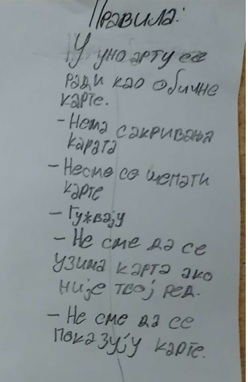 Правила:
У уно арту се
ради као обичне
карте.
- Нема сакривања
карата
- Несме се шепати
карте
- Гужвају
- Не сме да се
узима карта ако
није твој ред.
- Не сме да се
показују карте.